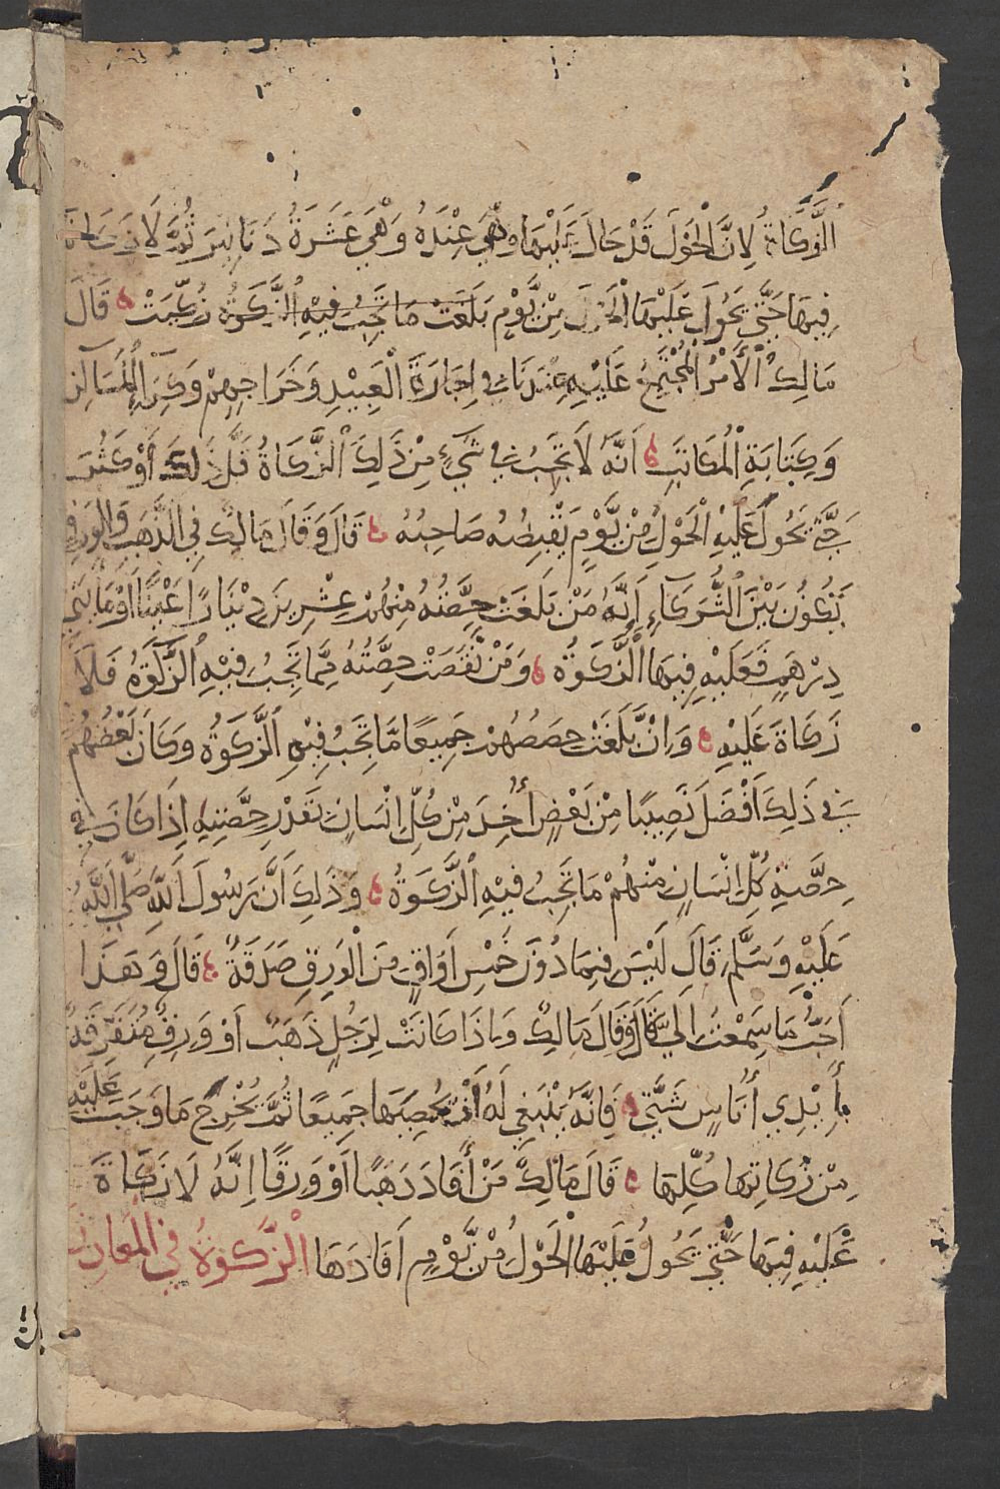 الزَّكَاةُ لِأَنَّ الْحَوْلَ قَدْ حَالَ عَلَيْهَا وَهْيَ عِنْدَهُ وَهْيَ عَشَرَةُ دَنَانِيرَ ثُمَّ لَا زَكَاةَ
فِيهَا حَتَّى يَحُولَ عَلَيْهَا الْحَوْلُ مِنْ يَّوْمِ بَلَغَتْ مَا تَجِبُ فِيهِ الزَّكَوٰةُ زُكِّيَتْ قَالَ
مَالِكٌ الْأَمْرُ الْمُجْتَمَعُ عَلَيْهِ عِنْدَنَا فِي إِجَارَةِ الْعَبِيدِ وَخَرَاجِهِمْ وَكِرَآءِ الْمَسَاكِنِ
وَكِتَابَةِ الْمُكَاتَبِ أَنَّهُ لَا تَجِبُ فِي شَيْءٍ مِنْ ذَلِكَ الزَّكَاةُ قَلَّ ذَلِكَ أَوْ كَثُرَ
حَتَّى يَحُولَ عَلَيْهِ الْحَوْلُ مِنْ يَّوْمِ يَقْبِضُهُ صَاحِبُهُ قَالَ وَقَالَ مَالِكٌ فِي الذَّهَبِ وَالْوَرِقِ
يَكُونُ بَيْنَ الشُّرَكَآءِ إِنَّهُ مَنْ بَلَغَتْ حِصَّتُهُ مِنْهُمْ عِشْرِينَ دِينَارًا عَيْنًا أَوْ مِائَتَيْ
دِرْهَمٍ فَعَلَيْهِ فِيهَا الزَّكَوٰةُ وَمَنْ نَقَصَتْ حِصَّتُهُ مِمَّا تَجِبُ فِيهِ الزَّكَوٰةُ فَلَا
زَكَاةَ عَلَيْهِ وَإِنْ بَلَغَتْ حِصَصُهُمْ جَمِيعًا مَّا تَجِبُ فِيهِ الزَّكَوٰةُ وَكَانَ بَعْضُهُمْ
فِي ذَلِكَ أَفْضَلَ نَصِيبًا مِنْ بَعْضٍ أُخِذَ مِنْ كُلِّ إِنْسَانٍ بِقَدْرِ حِصَّتِهِ إِذَا كَانَ فِي
حِصَّةِ كُلِّ إِنْسَانٍ مِنْهُمْ مَا تَجِبُ فِيهِ الزَّكَوٰةُ وَذَلِكَ أَنَّ رَسُولَ اللَّهِ صَلَّى اللَّهُ
عَلَيْهِ وَسَلَّمَ قَالَ لَيْسَ فِيمَا دُونَ خَمْسِ أَوَاقٍ مِنَ الْوَرِقِ صَدَقَةٌ قَالَ وَهَذَا
أَحَبُّ مَا سَمِعْتُ إِلَيَّ قَالَ وَقَالَ مَالِكٌ وَإِذَا كَانَتْ لِرَجُلٍ ذَهَبٌ أَوْ وَرِقٌ مُتَفَرِّقَةٌ
بِأَيْدِي أُنَاسٍ شَتَّى فَإِنَّهُ يَنْبَغِي لَهُ أَنْ يُحْصِيَهَا جَمِيعًا ثُمَّ يُخْرِجُ مَا وَجَبَ عَلَيْهِ
مِنْ زَكَاتِهَا كُلِّهَا قَالَ مَالِكٌ مَنْ أَفَادَ ذَهَبًا أَوْ وَرِقًا إِنَّهُ لَا زَكَاةَ
عَلَيْهِ فِيهَا حَتَّى يَحُولَ عَلَيْهَا الْحَوْلُ مِنْ يَّوْمِ أَفَادَهَا الزَّكَوٰةُ فِي الْمَعَادِنِ